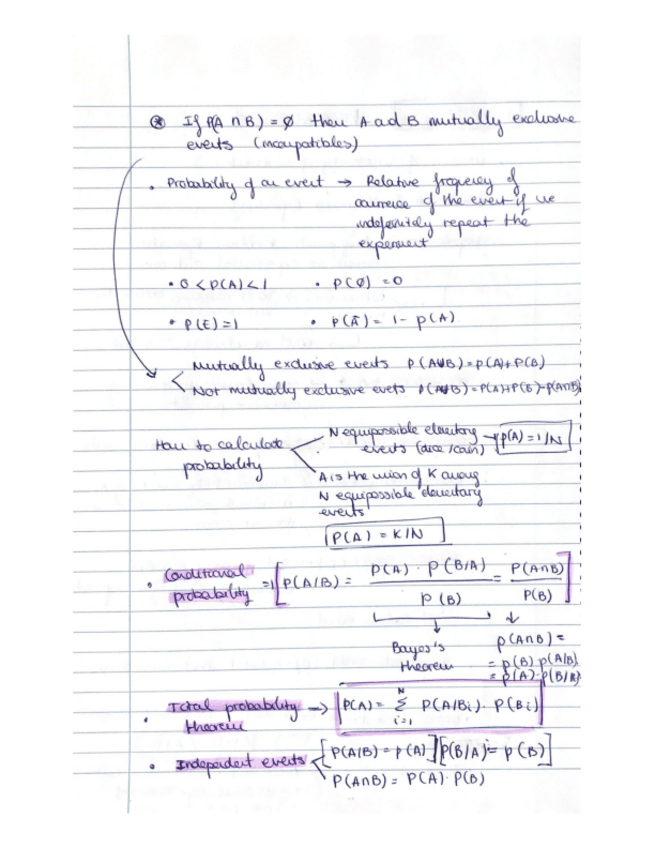 ⊛ If P(A ∩ B) = ∅ then A ad B mutually exclusive
events (incompatibles)
• Probability of an event → Relative frequency of
occurrence of the event if we
indefinitely repeat the
experiment
• 0 < P(A) < 1 • P(∅) = 0
• P(E) = 1 • P(Ā) = 1 - P(A)
Mutually exclusive events P(A∪B) = P(A)+P(B)
Not mutually exclusive evets P(A∪B) = P(A)+P(B)-P(A∩B)
How to calculate probability
N equipossible elementary
events (dice/coin) → P(A) = 1/N
A is the union of K among
N equipossible elementary
events
P(A) = K/N
• Conditional probability ⇒ P(A/B) = P(A) · P(B/A) / P(B) = P(A∩B) / P(B)
Bayes's theorem
P(A∩B) =
= P(B) · P(A/B)
= P(A) · P(B/A)
• Total probability theorem → P(A) = N Σ i=1 P(A/Bi) · P(Bi)
• Independent events [P(A/B) = P(A)] [P(B/A) = P(B)]
P(A∩B) = P(A) · P(B)